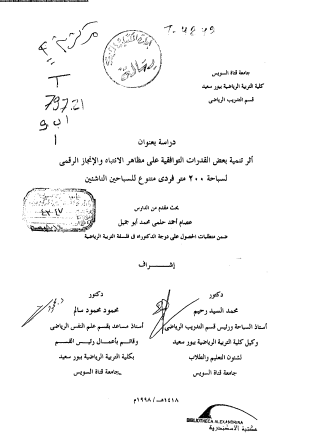 T. 4249
T
797.21
ا ب و
ا
جامعة قناة السويس
كلية التربية الرياضية ببور سعيد
قسم التدريب الرياضى
دراسة بعنوان
أثر تنمية بعض القدرات التوافقية على مظاهر الانتباه والإنجاز الرقمى
لسباحة ٢٠٠ متر فردى متنوع للسباحين الناشئين
بحث مقدم من الدارس
عصام أحمد حلمى محمد أبو جميل
ضمن متطلبات الحصول على درجة الدكتوراه فى فلسفة التربية الرياضية
إشراف
دكتور
محمد السيد رحيم
أستاذ السباحة ورئيس قسم التدريب الرياضى
وكيل كلية التربية الرياضية ببور سعيد
لشئون التعليم والطلاب
جامعة قناة السويس
دكتور
محمود محمود سالم
أستاذ مساعد بقسم علم النفس الرياضى
وقائم بأعمال رئيس القسم
بكلية التربية الرياضية ببور سعيد
جامعة قناة السويس
١٤١٨هـ / ١٩٩٨م
BIBLIOTHECA ALEXANDRINA
مكتبة الاسكندرية